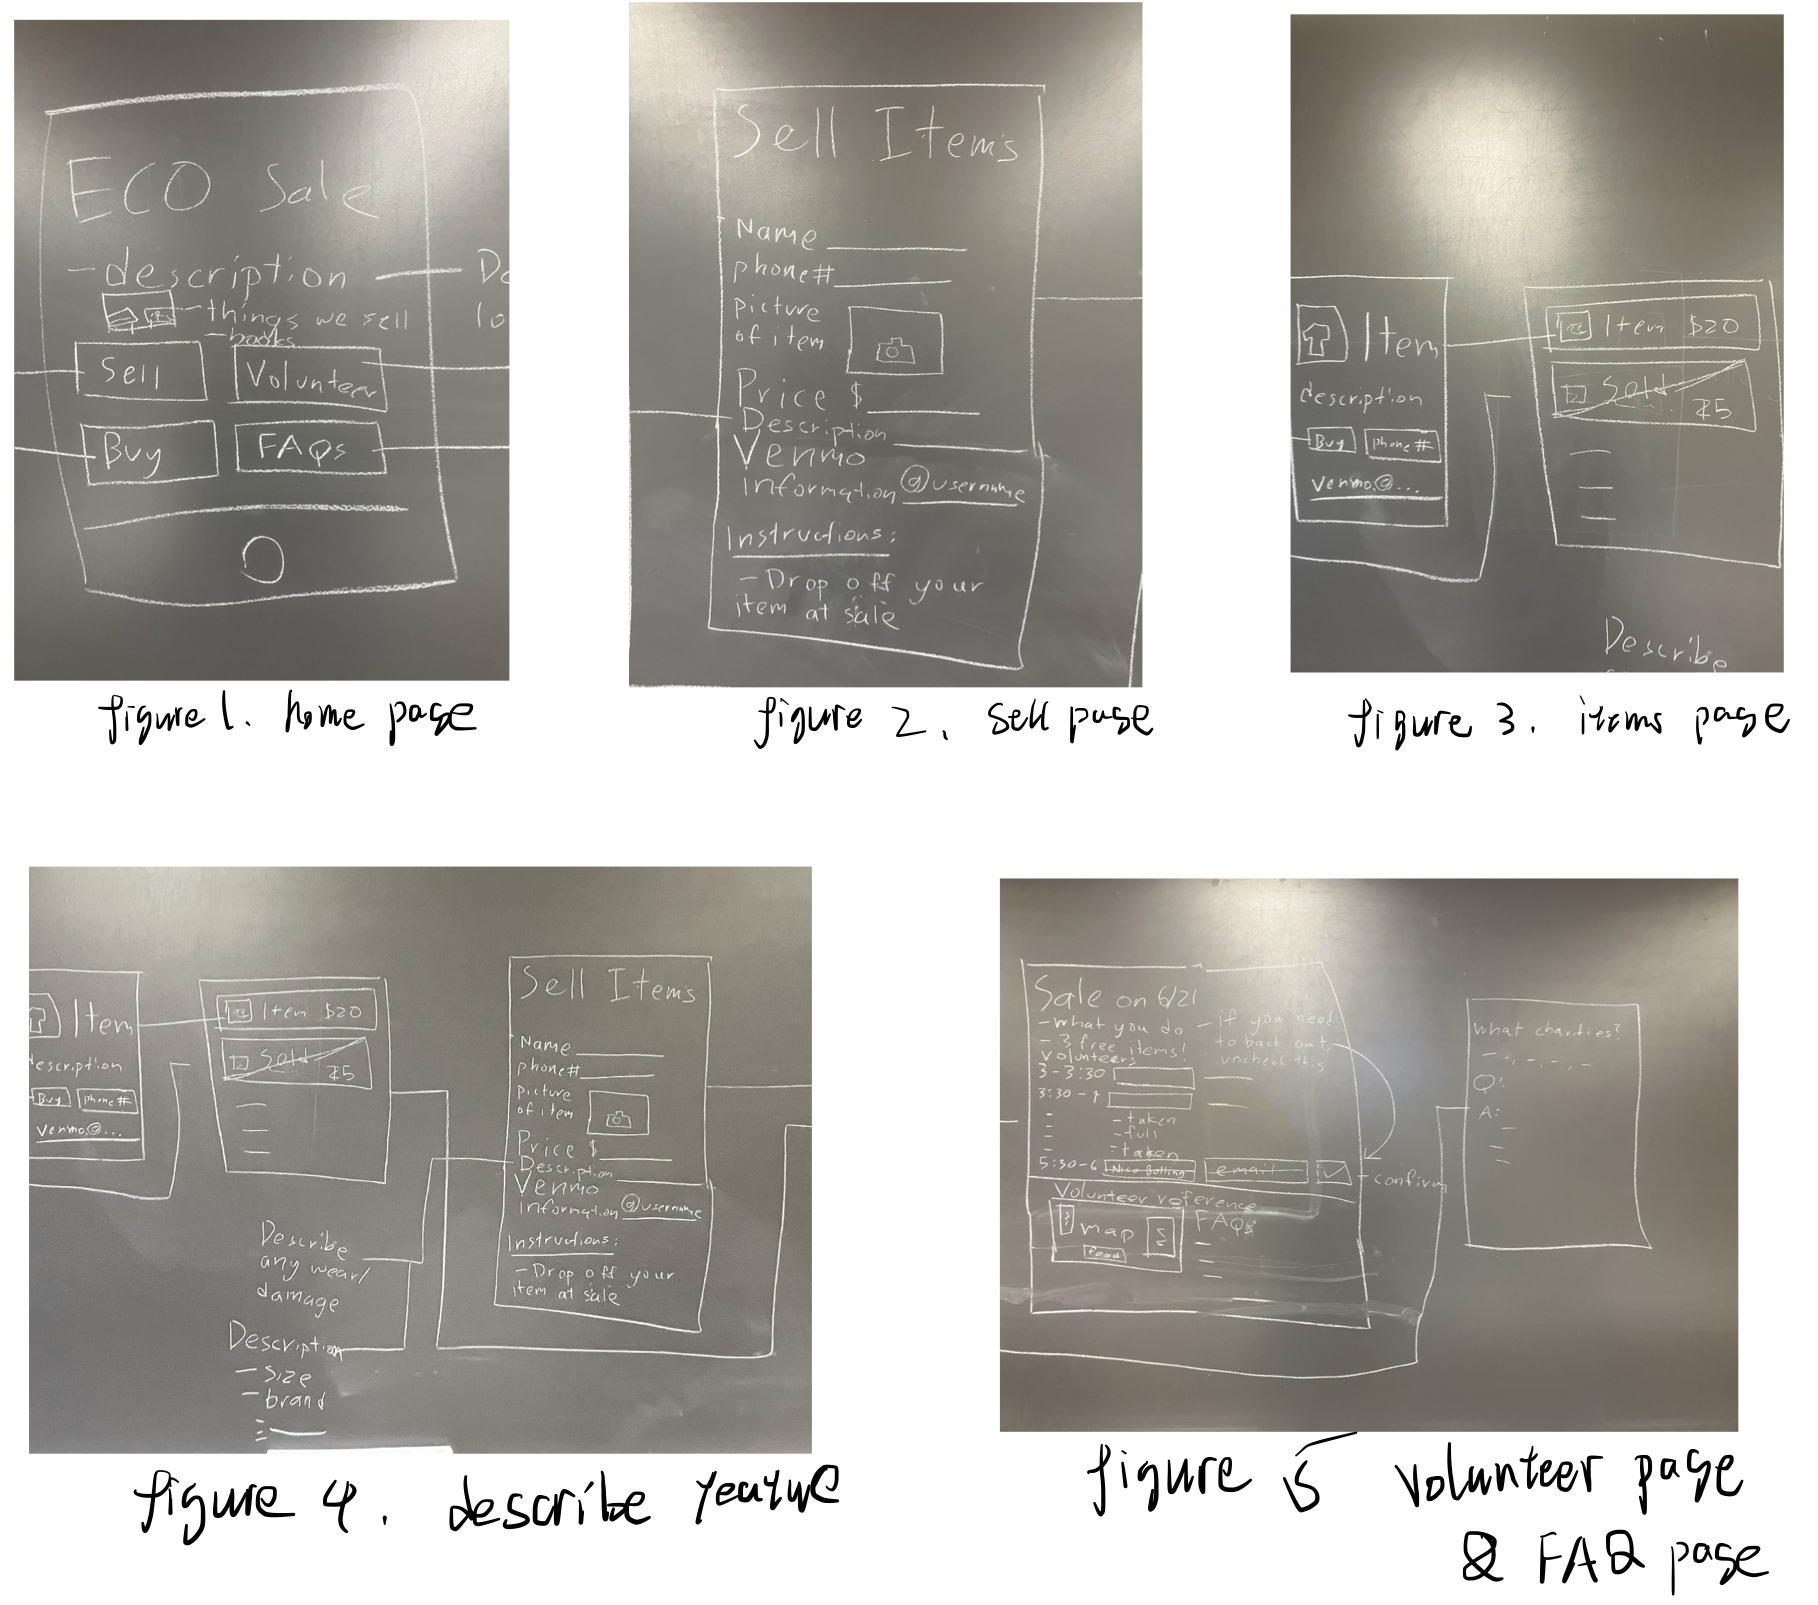 ECO Sale
- description
- things we sell
- books
Sell
Volunteer
Buy
FAQs
figure 1. home page
Sell Items
Name
phone#
picture
of item
Price $
Description
Venmo
information @username
Instructions:
- Drop off your
item at sale
figure 2. sell page
Item
description
Buy
phone#
Venmo@...
Item $20
Sold
Describe
figure 3. items page
Item
description
Buy
phone#
Venmo@...
Item $20
Sold
Describe
any wear/
damage
Description
- size
- brand
Sell Items
Name
phone#
picture
of item
Price $
Description
Venmo
information @username
Instructions:
- Drop off your
item at sale
figure 4. describe feature
Sale on 6/21
- what you do
- 3 free items!
- if you need
to back out,
uncheck this
volunteers
3-3:30
3:30-4
- taken
- full
- taken
5:30-6 Nico Bolling email
- confirm
Volunteer reference
map
food
FAQs
what charities?
Q:
A:
figure 5 volunteer page
& FAQ page